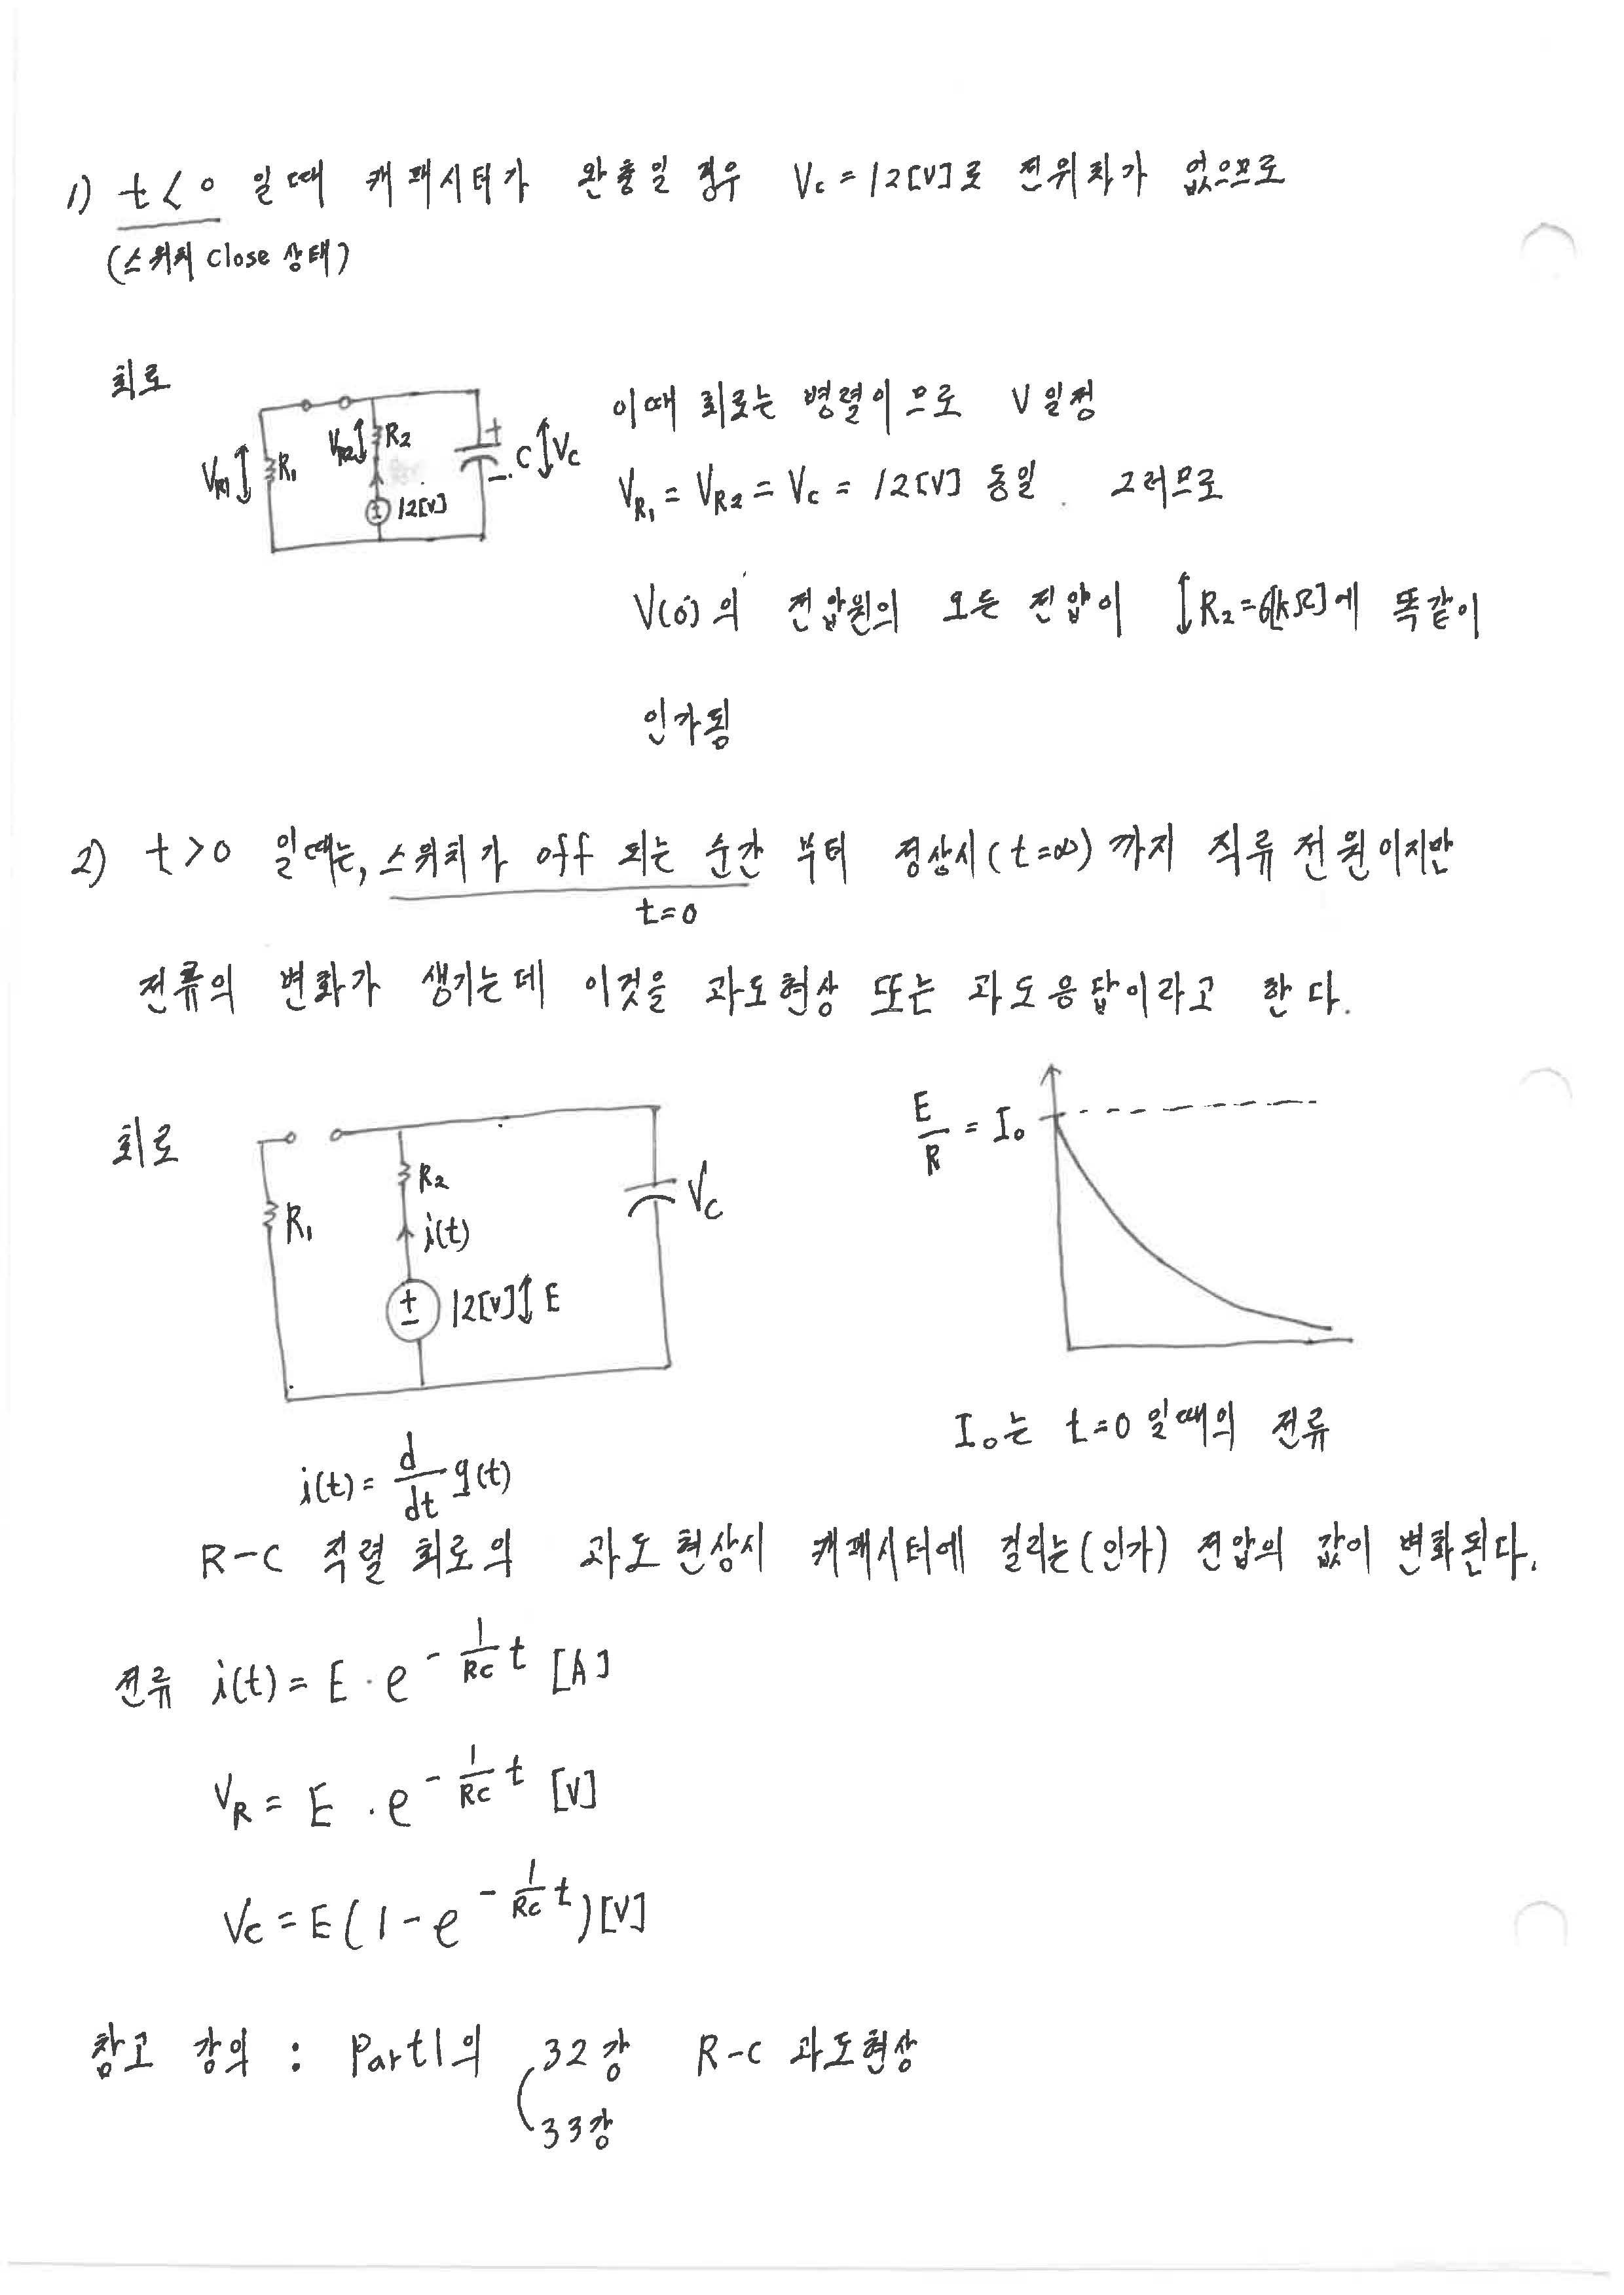 1) t < 0 일때 캐패시터가 완충일 경우 Vc = 12[V]로 전위차가 없으므로
(스위치 close 상태)
회로
이때 회로는 병렬이므로 V일정
VR1 R1 VR2 R2 + - C Vc
± 12[V]
VR1 = VR2 = Vc = 12[V] 동일. 그러므로
V(0⁻)의 전압원의 모든 전압이 ↕R2=6[kΩ]에 똑같이
인가됨
2) t>0 일때는, 스위치가 off 되는 순간 부터 정상시(t=∞) 까지 직류 전원이지만
t=0
전류의 변화가 생기는데 이것을 과도현상 또는 과도응답이라고 한다.
회로
R1 R2 i(t) Vc
+ - 12[V]↕ E
E/R = I₀
I₀는 t=0 일때의 전류
i(t) = d/dt q(t)
R-C 직렬 회로의 과도현상시 캐패시터에 걸리는(인가)전압의 값이 변화된다.
전류 i(t) = E · e^(-1/RC t) [A]
VR = E · e^(-1/RC t) [V]
Vc = E(1-e^(-1/RC t)) [V]
참고 강의 : Part1의 32강 R-C 과도현상
33강